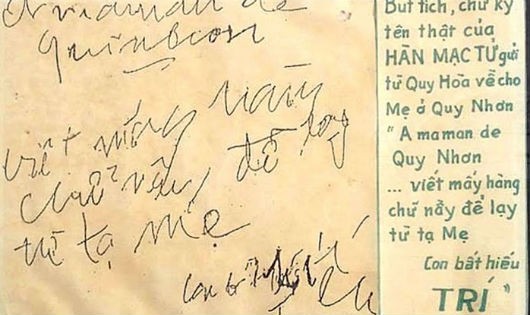 A maman de
Quinhon
viết mấy hàng
chữ nầy để lạy
từ tạ Mẹ
Con bất hiếu
Bút tích, chữ ký
tên thật của
HÀN MẠC TỬ gửi
từ Quy Hòa về cho
Mẹ ở Quy Nhơn
" A maman de
Quy Nhơn
... viết mấy hàng
chữ nầy để lạy
từ tạ Mẹ
Con bất hiếu
TRÍ "